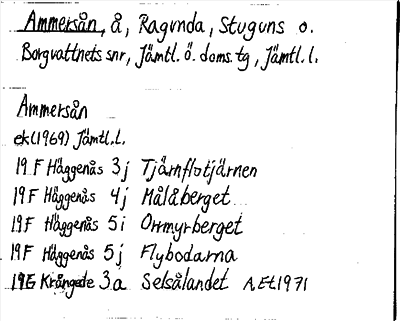 Ammersån, å, Ragunda, Stuguns o.
Borgvattnets snr, Jämtl. ö. doms. tg, Jämtl. l.
Ammersån
ek (1969) Jämtl. l.
19 F Häggenås 3 j Tjärnflotjärnen
19 F Häggenås 4 j Målåberget
19 F Häggenås 5 i Ormyrberget
19 F Häggenås 5 j Flybodarna
19 G Krångede 3 a Selsålandet A. Et. 1971